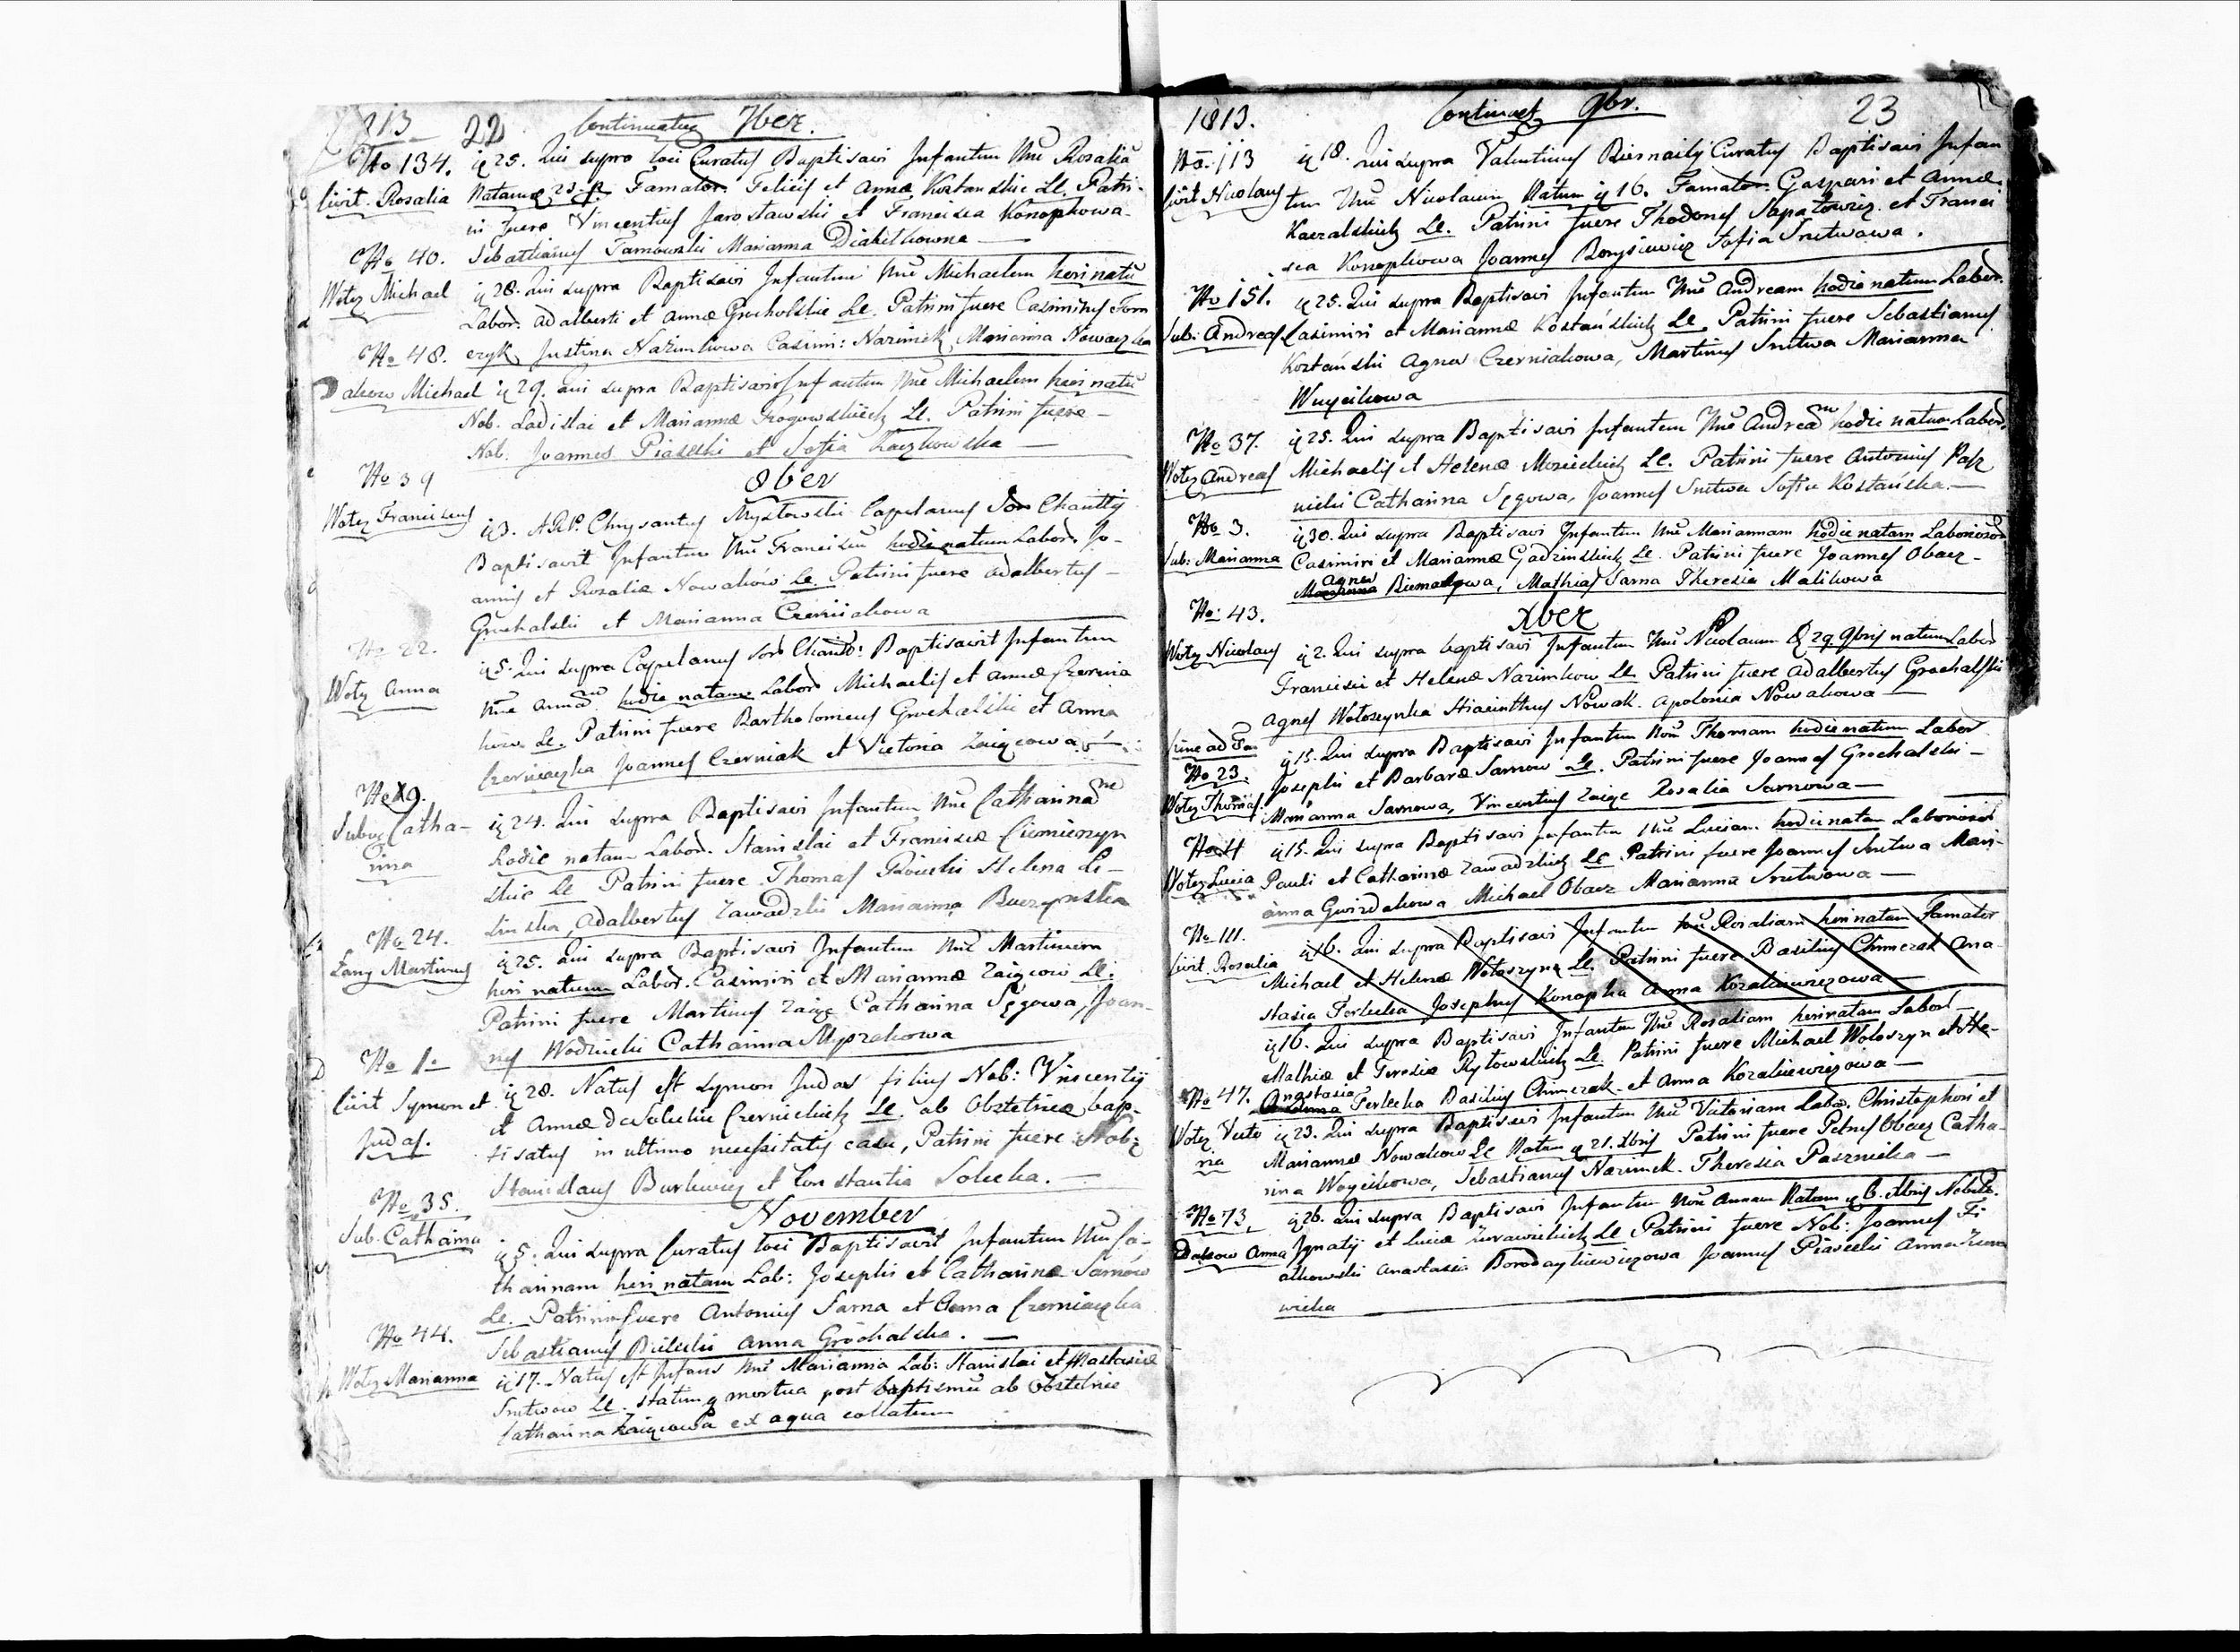 1813 22 Continuatur 7ber.
No 134. ig 25. Qui supra loci Curatus Baptisavi Infantem Nne Rosalia
Civit. Rosalia Natam 23. Famator. Felicis et Annæ Kostanskie LC. Patri-
ni fuere Vincentius Jarosławski et Francisca Konopkowa
Sebastianus Tarnowski Marianna
No 40.
Wolez Michael ig 28. Qui supra Baptisavi Infantem Nne Michaelem heri natu
Labor. Adalberti et Annæ Grochalskie LC. Patrini fuere Casimirus Forn
No 48. eryk, Justina Nazimkowa Casimi: Nazimek, Marianna Nowaczka
Dakow Michael ig 29. Qui supra Baptisavi Infantem Nne Michaelem heri natu
Nob. Ladislai et Mariannæ Rogowskich LC. Patrini fuere
Nob. Joannes Piasecki et Sofia Kaczkowska
No 39 8ber
Wolez Franciscus ig 3. ARP. Chrysantus Mysłowski Capelanus Baptisavit Infantem Nne Franciscu hodie natum Labor. Jo-
annis et Rosaliæ Nowaków LC. Patrini fuere Adalbertus
Grochalski et Marianna Czerniakowa
No 22. ig 5. Qui supra Capelanus Baptisavit Infantem
Wolez Anna Nne Annam hodie natam Labor. Michaelis et Annæ Czernia
ków LC. Patrini fuere Bartholomeus Grochalski et Anna
Czerniaczka Joannes Czerniak et Victoria Zaiącowa
No 9.
Suboz Catha- ig 24. Qui supra Baptisavi Infantem Nne Catharinam
rina hodie natam Labor. Stanislai et Franciscæ
skie LC Patrini fuere Thomas Helena Le-
sinska, Adalbertus Zawadzki Marianna Buczynska
No 24.
Łany Martinus ig 25. Qui supra Baptisavi Infantem Nne Martinum
heri natum Labor. Casimiri et Mariannæ Zaiącow LC.
Patrini fuere Martinus Zaiąc Catharina Sęgowa, Joan-
nes Wodnicki Catharina
No 1.
Civit Symon et ig 28. Natus est Symon Judas filius Nob: Vincentij
Judas. et Annæ de Soleckie Czernickich LC. ab Obstetrice bap-
tisatus in ultimo necessitatis casu, Patrini fuere Nob:
Stanislaus et Constantia Solecka.
No 35. November
Sub. Catharina ig 5. Qui supra Curatus loci Baptisavit Infantem Nne Ca-
tharinam heri natam Lab: Josephi et Catharinæ Sarnów
LC. Patrini fuere Antonius Sarna et Anna Czerniaczka
Sebastianus Bielecki Anna Grochalska.
No 44.
Wolez Marianna ig 17. Natus est Infans Nne Marianna Lab: Stanislai et Anastasiæ
Snitwow LC. statimq mortua post baptismu ab Obstetrice
Catharina Zaiącowa ex aqua collatum
1813. Continuat 9br. 23
No. 113 ig 18. Qui supra Valentinus Biernacky Curatus Baptisavi Infan
Civit Nicolaus tem Nne Nicolaum Natum ig 16. Famator Gaspari et Annæ
Kaczalskich LC. Patrini fuere Thodorus Sapałowicz et Franci
sca Konopkowa Joannes Borysiewicz Sofia Snitwowa.
No 151. ig 25. Qui supra Baptisavi Infantem Nne Andream hodie natum Labor.
Sub: Andreas Casimiri et Mariannæ Kostańskich LC. Patrini fuere Sebastianus
Kostański Agnes Czerniakowa, Martinus Snitwa Marianna
Wuycikowa
No 37. ig 25. Qui supra Baptisavi Infantem Nne Andream hodie natum Labor.
Wolez Andreas Michaelis et Helenæ Mosieckich LC. Patrini fuere Antonius Pasz
nicki Catharina Sęgowa, Joannes Snitwa Sofia Kostańska.
No 3. ig 30. Qui supra Baptisavi Infantem Nne Mariannam hodie natam Laborioso
Sub: Marianna Casimiri et Mariannæ Gadzinskich LC. Patrini fuere Joannes Obacz
Agnes , Mathias Sarna Theresia Malikowa
No. 43. Xber
Wolez Nicolaus ig 2. Qui supra baptisavi Infantem Nne Nicolaum 29 9bris natum Labor
Francisci et Helenæ Nazimkow LC Patrini fuere Adalbertus Grochalski
Agnes Wołoszynka Hiacinthus Nowak Apolonia Nowakowa
No 23. ig 15. Qui supra Baptisavi Infantem Nne Thomam hodie natum Labor
Wolez Thomas Josephi et Barbaræ Sarnow LC. Patrini fuere Joannes Grochalski
Marianna Sarnowa, Vincentius Zaiąc Rosalia Sarnowa
ig 15. Qui supra Baptisavi Infantem Nne Luciam hodie natam Laborioso
Wolez Lucia Pauli et Catharinæ Zawadzkich LC Patrini fuere Joannes Snitwa Mari-
anna Gwizdakowa Michael Obacz Marianna Snitwowa
No 111. ig 16. Qui supra Baptisavi Infantem Nne Rosaliam heri natam Famator
Civit. Rosalia Michael et Helenæ Wołoszyn LC. Patrini fuere Basilius Chimczak Ana-
stasia Terlecka Josephus Konopka Anna Kozakiewiczowa
ig 16. Qui supra Baptisavi Infantem Nne Rosaliam heri natam Labor
Mathiæ et Teresiæ Rytowskich LC. Patrini fuere Michael Wołoszyn et He-
No 47. Anastasia Terlecka Basilius Chimczak et Anna Kozakiewiczowa
Wolez Victo ig 23. Qui supra Baptisavi Infantem Nne Victoriam Labor. Christophori et
ria Mariannæ Nowakow LC Natam 21. Xbris Patrini fuere Petrus Obacz Catha-
rina Woycikowa, Sebastianus Nazimek Theresia Pasznicka
No 73. ig 26. Qui supra Baptisavi Infantem Nne Annam Natam ig 6. Xbris Nobili.
Dakow Anna Ignatij et Luciæ Żurawickich LC Patrini fuere Nob: Joannes Fi
atkowski Anastasia Borodaykiewiczowa Joannes Piasecki Anna Żura
wicka